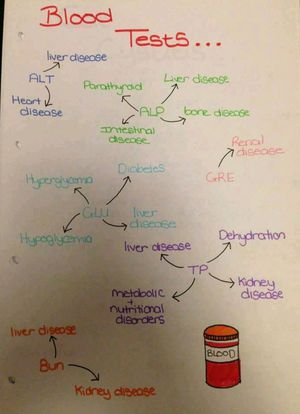 Blood
Tests...
liver disease
ALT
Heart disease
Parathyroid
Liver disease
ALP
bone disease
Intestinal
disease
Renal
disease
GRE
Hyperglycemia
Diabetes
GLU
liver
disease
Hypoglycemia
liver disease
Dehydration
TP
Kidney
disease
metabolic
+
nutritional
disorders
liver disease
Bun
Kidney disease
BLOOD